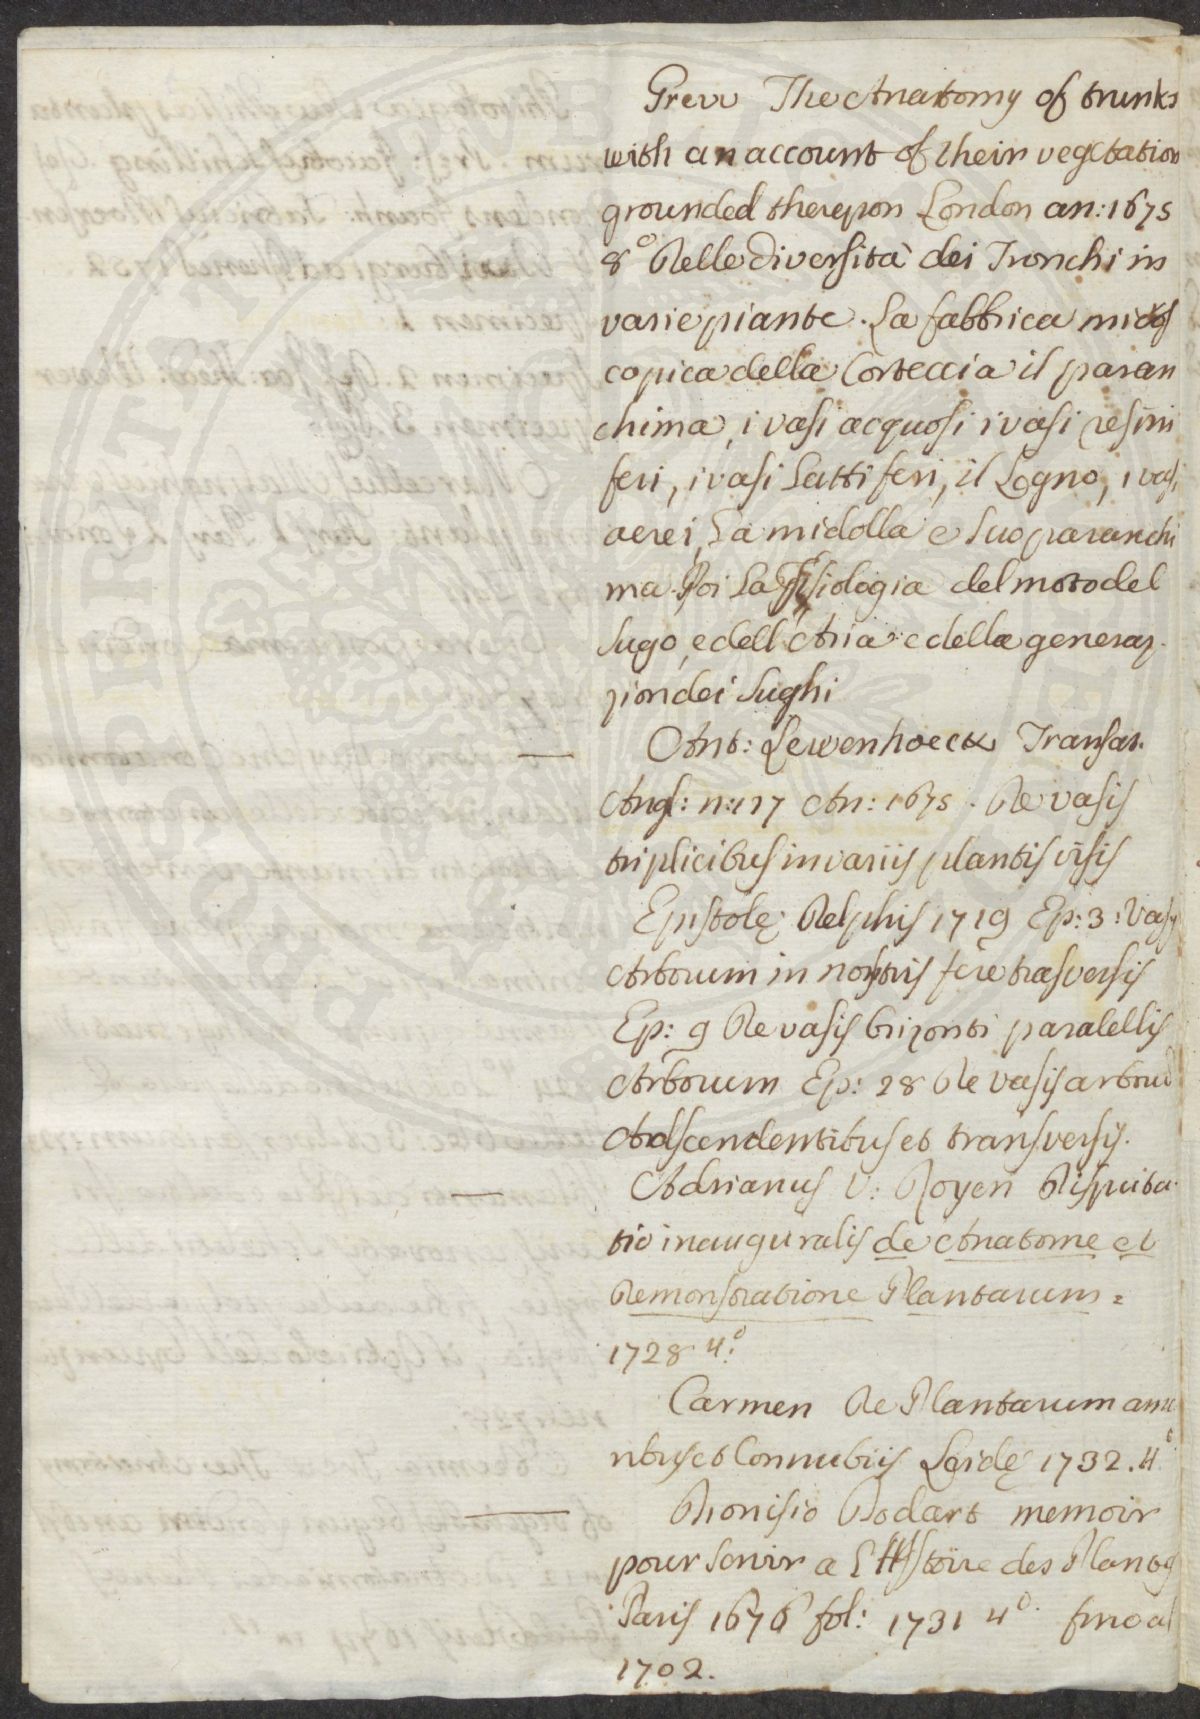 Grew The Anatomy of trunks
with an account of their vegetation
grounded therepon London an: 1675
8° Delle diversità dei Tronchi in
varie piante. La fabbrica micros
copica della Corteccia il paran
chima, i vasi acquosi i vasi resini
feri, i vasi Lattiferi, il Legno, i vasi
aerei, La midolla e suo paranchi
ma. Poi La Fisiologia del moto del
sugo, e dell'Aria e della generaz-
zion dei sughi
Ant: Lewenhoeck Transat.
Angl: n: 117 An: 1675. De vasis
triplicibus in variis plantis visis
Epistolę Delphis 1719 Ep: 3: Vasis
Arborum in nostris fere trasversis
Ep: 9 De vasis orizonti paralellis
Arborum Ep: 28 De vasis arborũ
Adscendentibus et transversis.
Adrianus V: Royen Disputa-
tio inauguralis de Anatome et
Demonstratione Plantarum =
1728 4°.
Carmen De Plantarum amo
ribus et Connubiis Leidę 1732. 4°
Dionisio Dodart memoir
pour servir a L'Histoire des Plantes
Paris 1676 fol: 1731 4° fino al
1702.